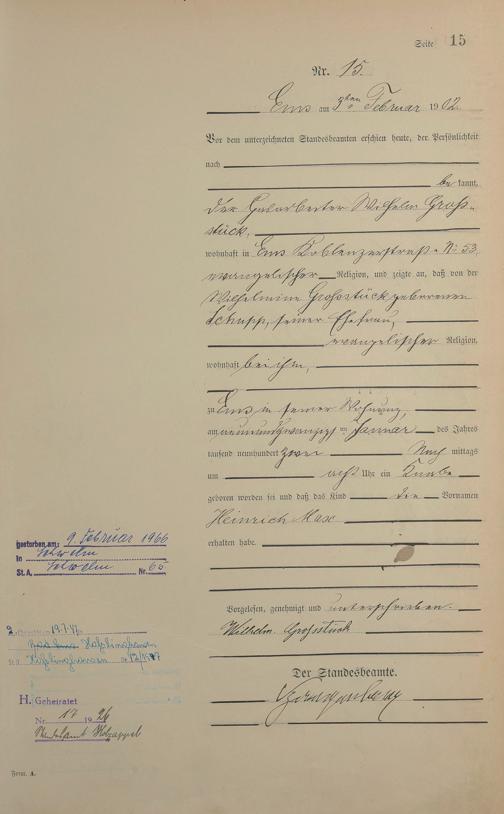 Seite 15
Nr. 15.
Ems am 3ten Februar 1902.
Vor dem unterzeichneten Standesbeamten erschien heute, der Persönlichkeit
nach
bekannt,
der Wilhelm Groß-
stück,
wohnhaft in Ems Koblenzerstraße No 53,
evangelischer Religion, und zeigte an, daß von der
Wilhelmine Großstück geborenen
Schupp, seiner Ehefrau,
evangelischer Religion,
wohnhaft bei ihm,
zu Ems in seiner Wohnung,
am neunundzwanzigsten Januar des Jahres
tausend neunhundert zwei Nachmittags
um acht Uhr ein Knabe
geboren worden sei und daß das Kind die Vornamen
Heinrich Max
erhalten habe.
Vorgelesen, genehmigt und unterschrieben.
Wilhelm Grossstück
Der Standesbeamte.
gestorben am: 9. Februar 1966
in
St.A. Nr. 65
H. Geheiratet
Nr. 17 1926
Standesamt Holzappel
Form. A.